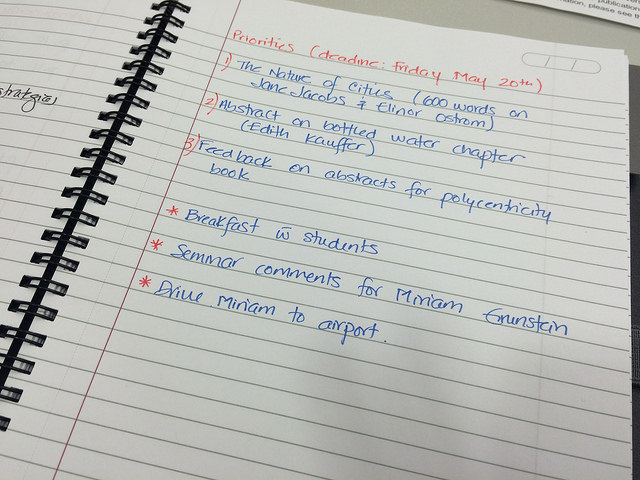 Priorities (deadline: Friday May 20th)
1) The Nature of Cities (600 words on
Jane Jacobs & Elinor Ostrom)
2) Abstract on bottled water chapter
(Edith Kauffer)
3) Feedback on abstracts for polycentricity
book
* Breakfast w̄ students
* Seminar comments for Miriam Grunstein
* Drive Miriam to airport.
strategies
publication
please see